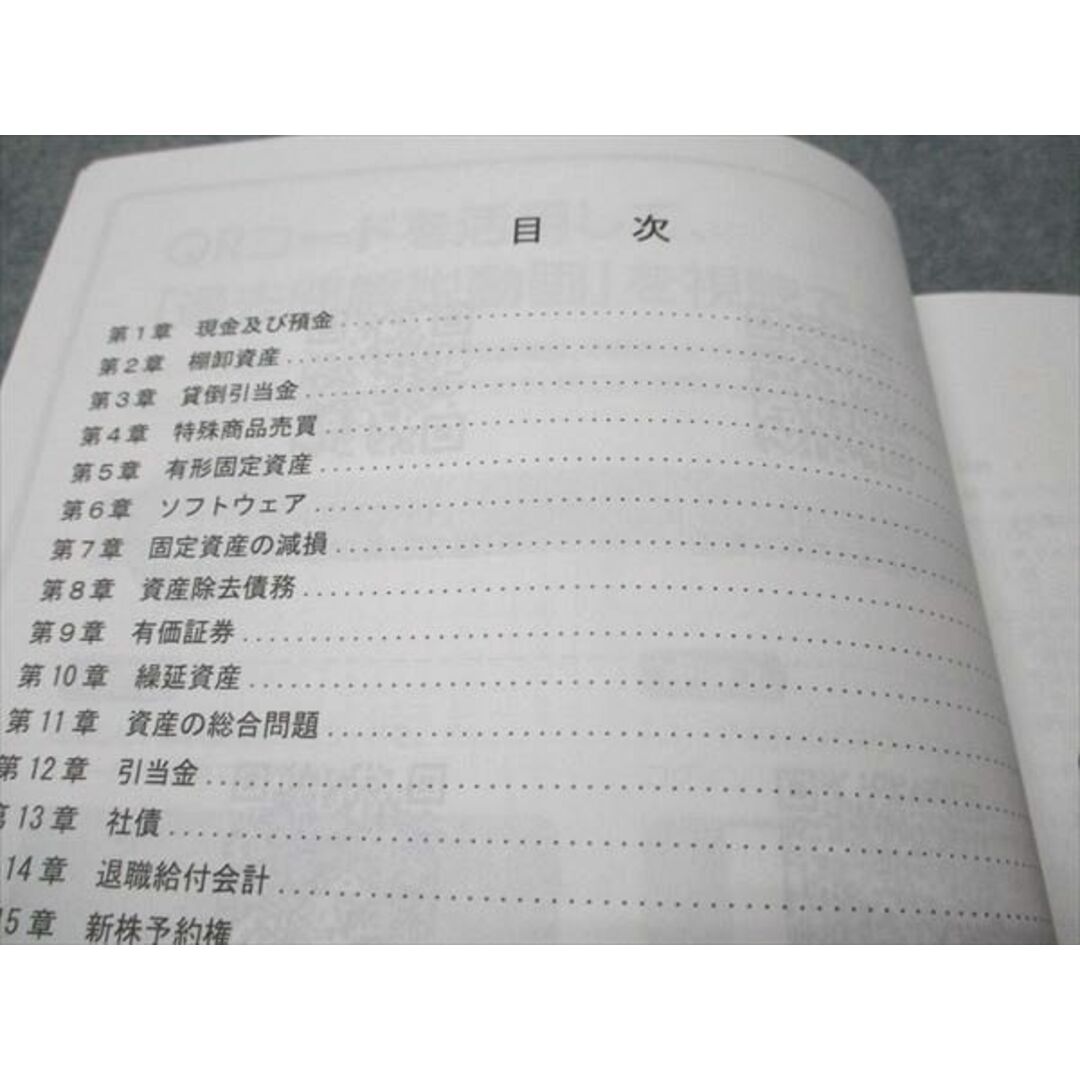 目 次
第1章 現金及び預金
第2章 棚卸資産
第3章 貸倒引当金
第4章 特殊商品売買
第5章 有形固定資産
第6章 ソフトウェア
第7章 固定資産の減損
第8章 資産除去債務
第9章 有価証券
第10章 繰延資産
第11章 資産の総合問題
第12章 引当金
13章 社債
14章 退職給付会計
15章 新株予約権